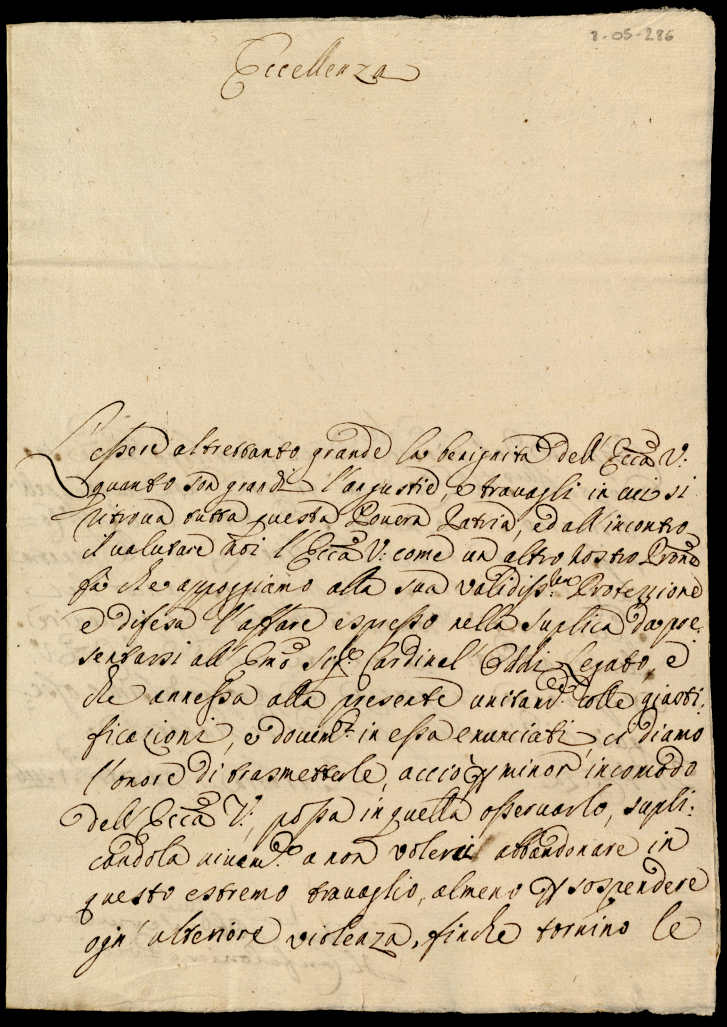 8-05-286
Eccellenza
L'essere altrettanto grande la benignità dell'Ecc.za V:
quanto son grandi l'angustie, e travagli in cui si
ritrova tutta questa Povera Patria, ed all'incontro
il valutare noi l'Ecc.za V: come un altro nostro Pro͠ne
fà che appoggiamo alla sua validiss.ma Protezzione
e difesa l'affare espresso nella suplica da pre:
sentarsi all'Emo͠ Sig.r Cardinel' Oddi Legato, e
che annessa alla presente unitam.e colle giusti:
ficazioni, e docum.ti in essa enunciati, ci diamo
l'onore di trasmetterle, acciò p minor' incomodo
dell'Ecc.za V: possa in quella osservarlo, supli:
candola vivam.e a non volerci abbandonare in
questo estremo travaglio, almeno p sospendere
ogn' ulteriore violenza, finche tornino le